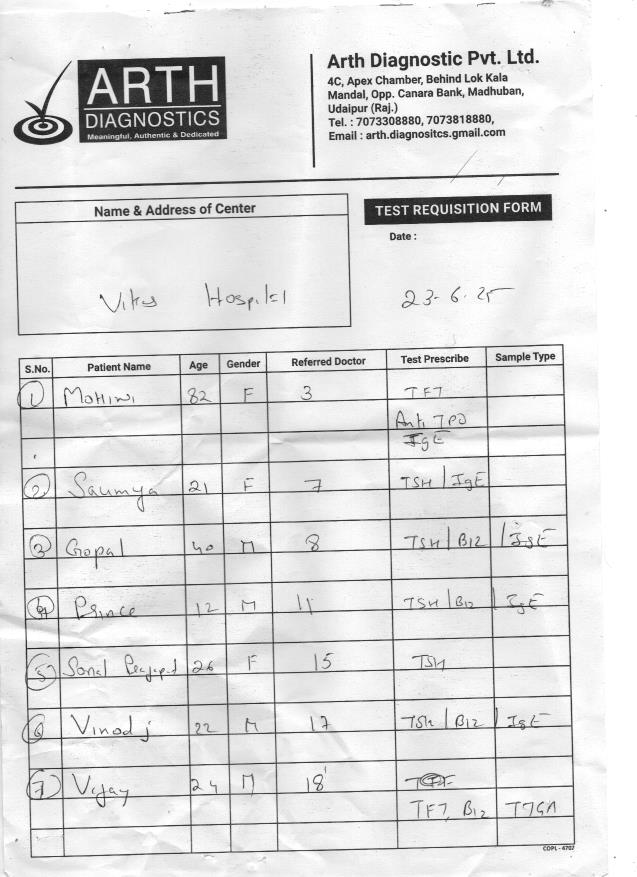 ARTH
DIAGNOSTICS
Meaningful, Authentic & Dedicated
Arth Diagnostic Pvt. Ltd.
4C, Apex Chamber, Behind Lok Kala
Mandal, Opp. Canara Bank, Madhuban,
Udaipur (Raj.)
Tel. : 7073308880, 7073818880,
Email : arth.diagnositcs.gmail.com
Name & Address of Center
Hospital
TEST REQUISITION FORM
Date :
23-6-25
S.No. Patient Name Age Gender Referred Doctor Test Prescribe Sample Type
1 Mohini 82 F 3 TFT
Anti TPO
IgE
2 Saumya 21 F 7 TSH / IgE
3 Gopal 40 M 8 TSH / B12 / IgE
4 Prince 12 M 11 TSH / B12 / IgE
5 Sonal 26 F 15 TSH
6 Vinod j 22 M 17 TSH / B12 / IgE
7 Vijay 24 M 18
TFT, B12 TTGA
COPL - 4702